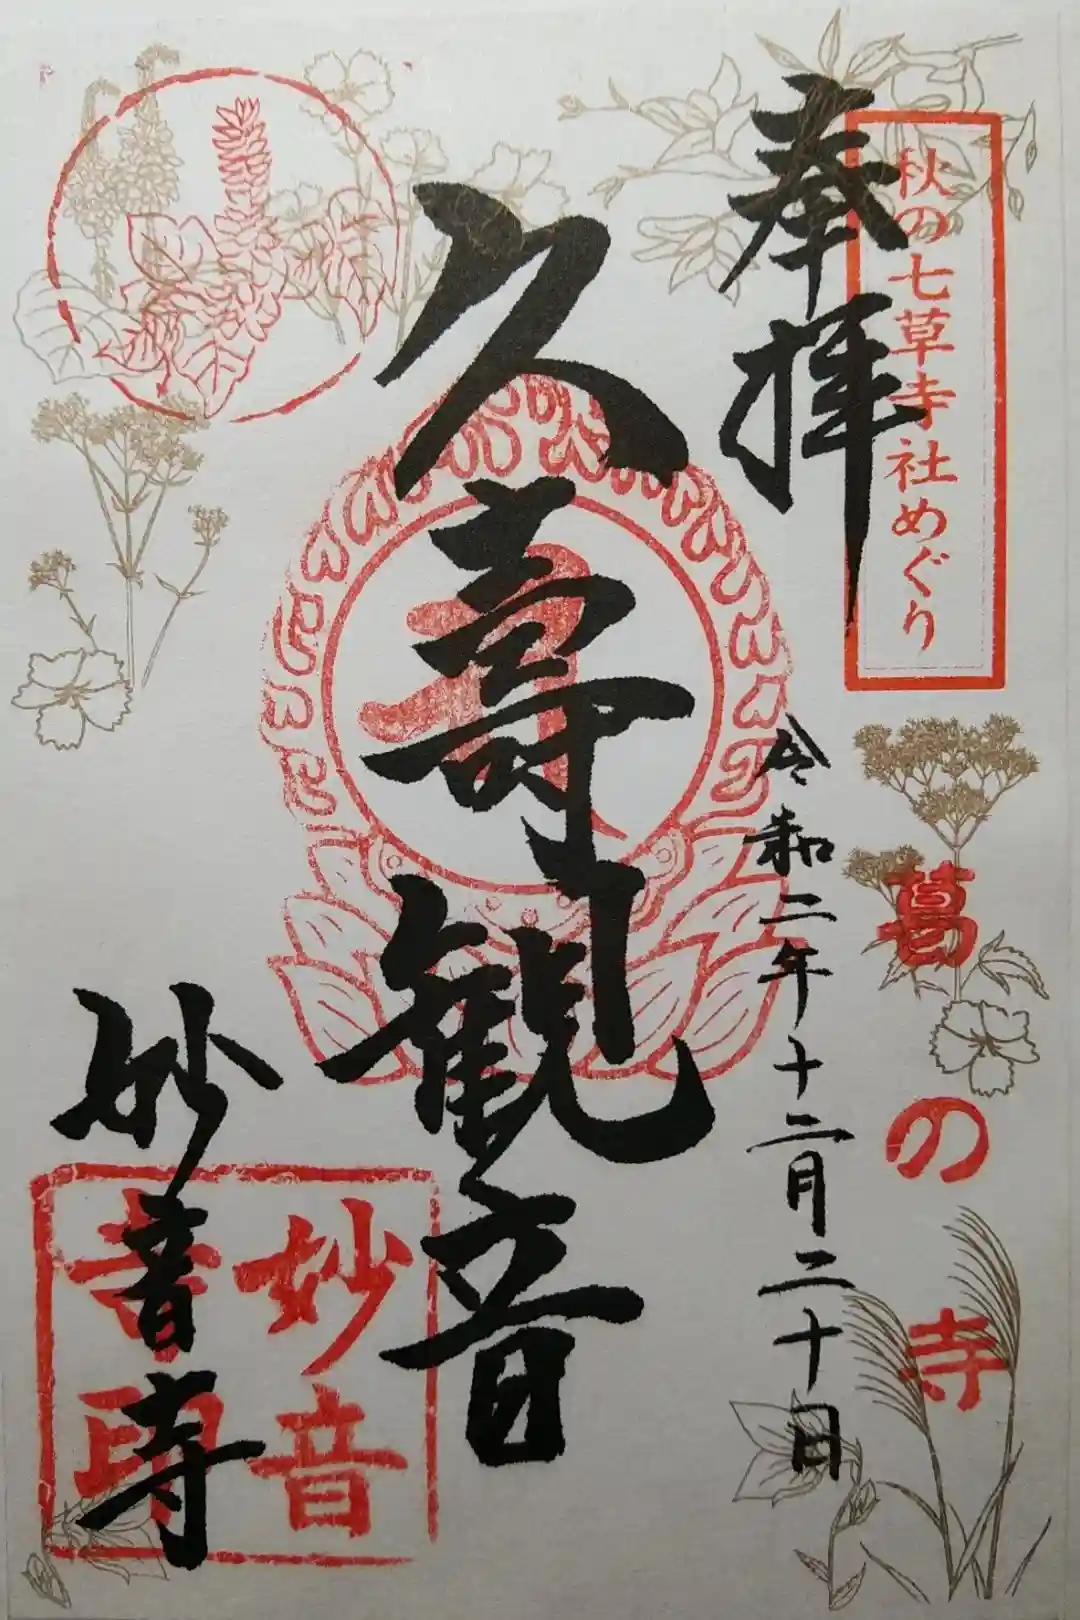 秋の七草寺社めぐり
奉拝
葛の寺
令和二年十二月二十日
久寿観音
妙音寺
妙音
寺印